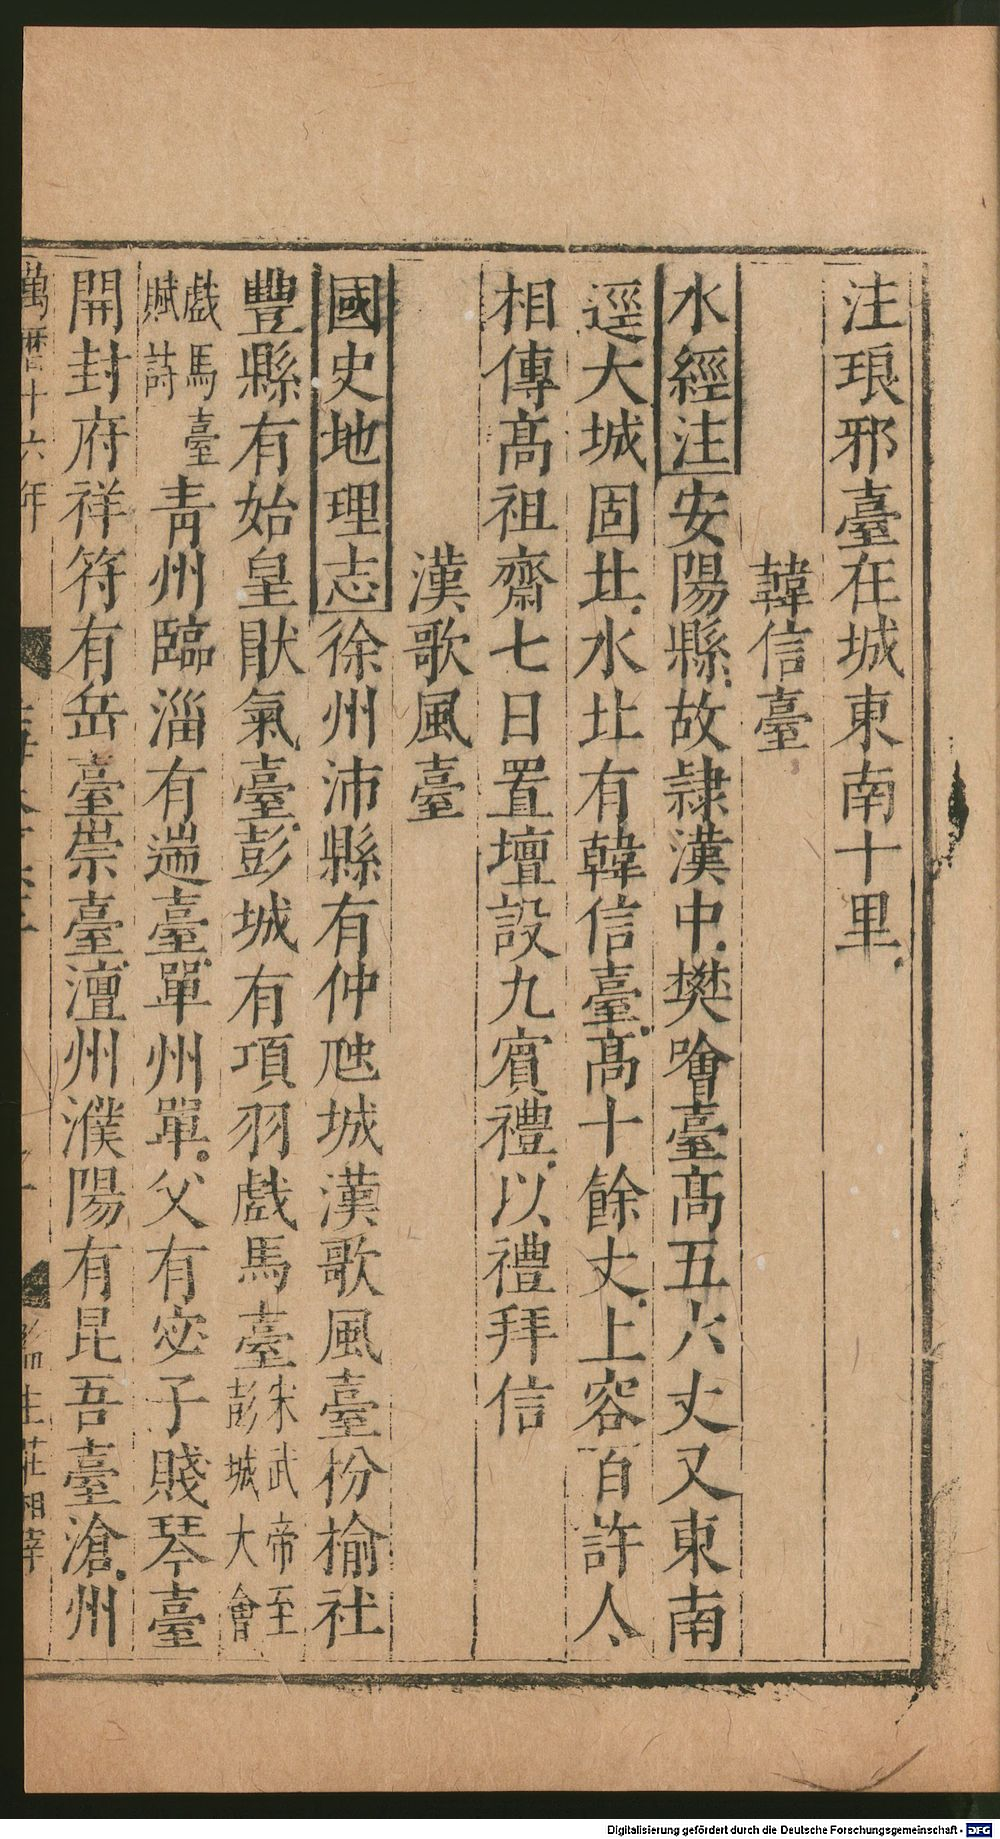 注琅邪臺在城東南十里
韓信臺
水經注安陽縣故隷漢中樊噲臺高五六丈又東南
逕大城固北水北有韓信臺高十餘丈上容百許人
相傳高祖齋七日置壇設九賓禮以禮拜信
漢歌風臺
國史地理志徐州沛縣有仲虺城漢歌風臺枌榆社
豐縣有始皇猒氣臺彭城有項羽戲馬臺宋武帝至彭城大會
戲馬臺賦詩青州臨淄有遄臺單州單父有宓子賤琴臺
開封府祥符有岳臺崇臺澶州濮陽有昆吾臺滄州
萬曆十六年
監生莊相宰
Digitalisierung gefördert durch die Deutsche Forschungsgemeinschaft - DFG